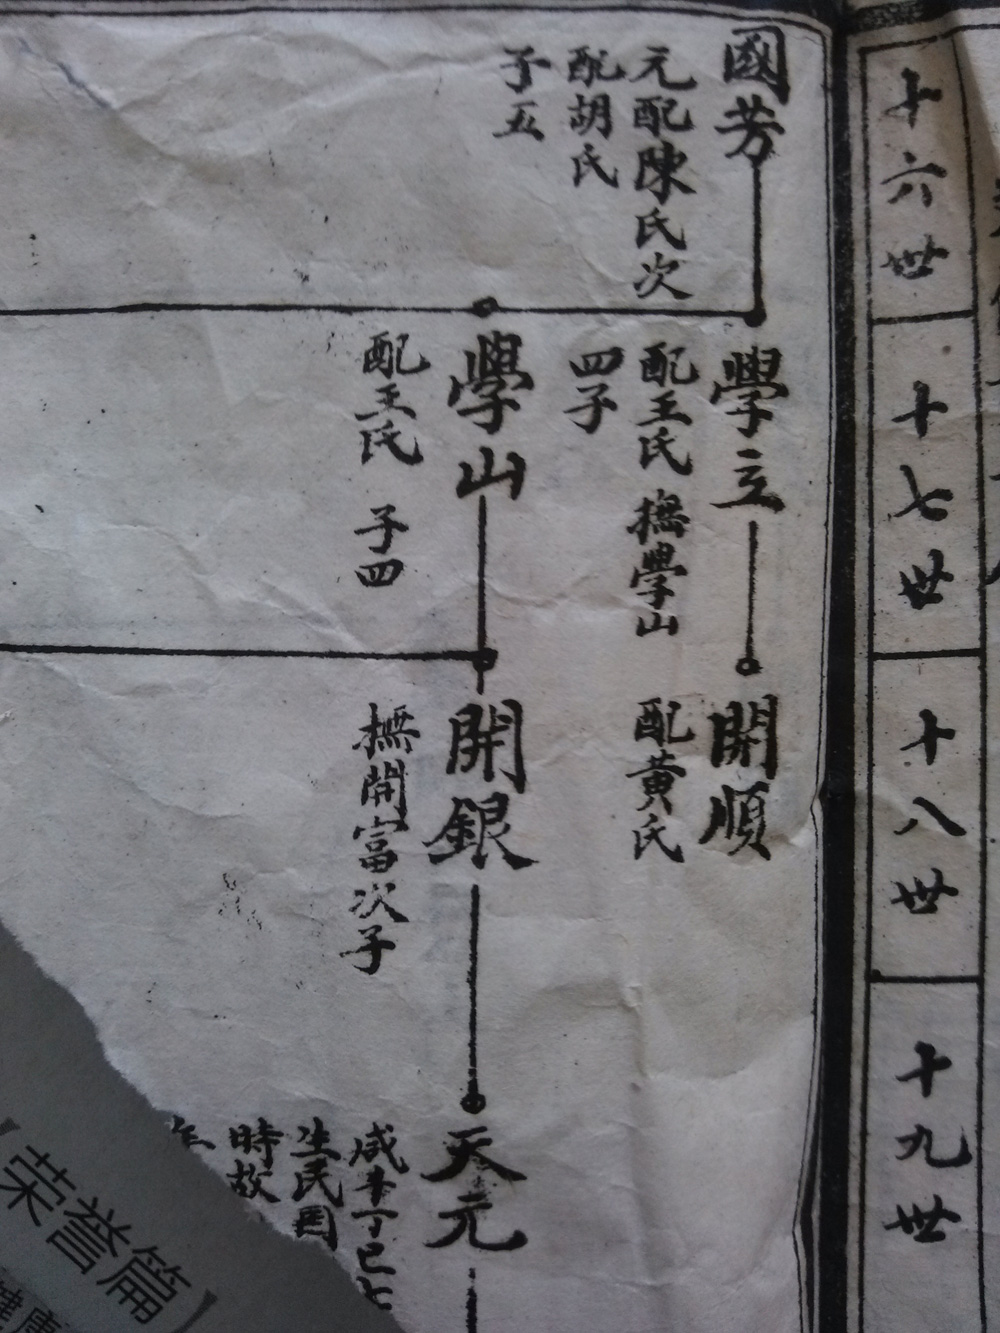 十六世
十七世
十八世
十九世
國芳
元配陳氏次
配胡氏
子五
學立
配王氏 撫學山
四子
學山
配王氏 子四
開順
配黃氏
開銀
撫開富次子
天元
咸丰丁巳七
生民国
時故
荣誉篇】